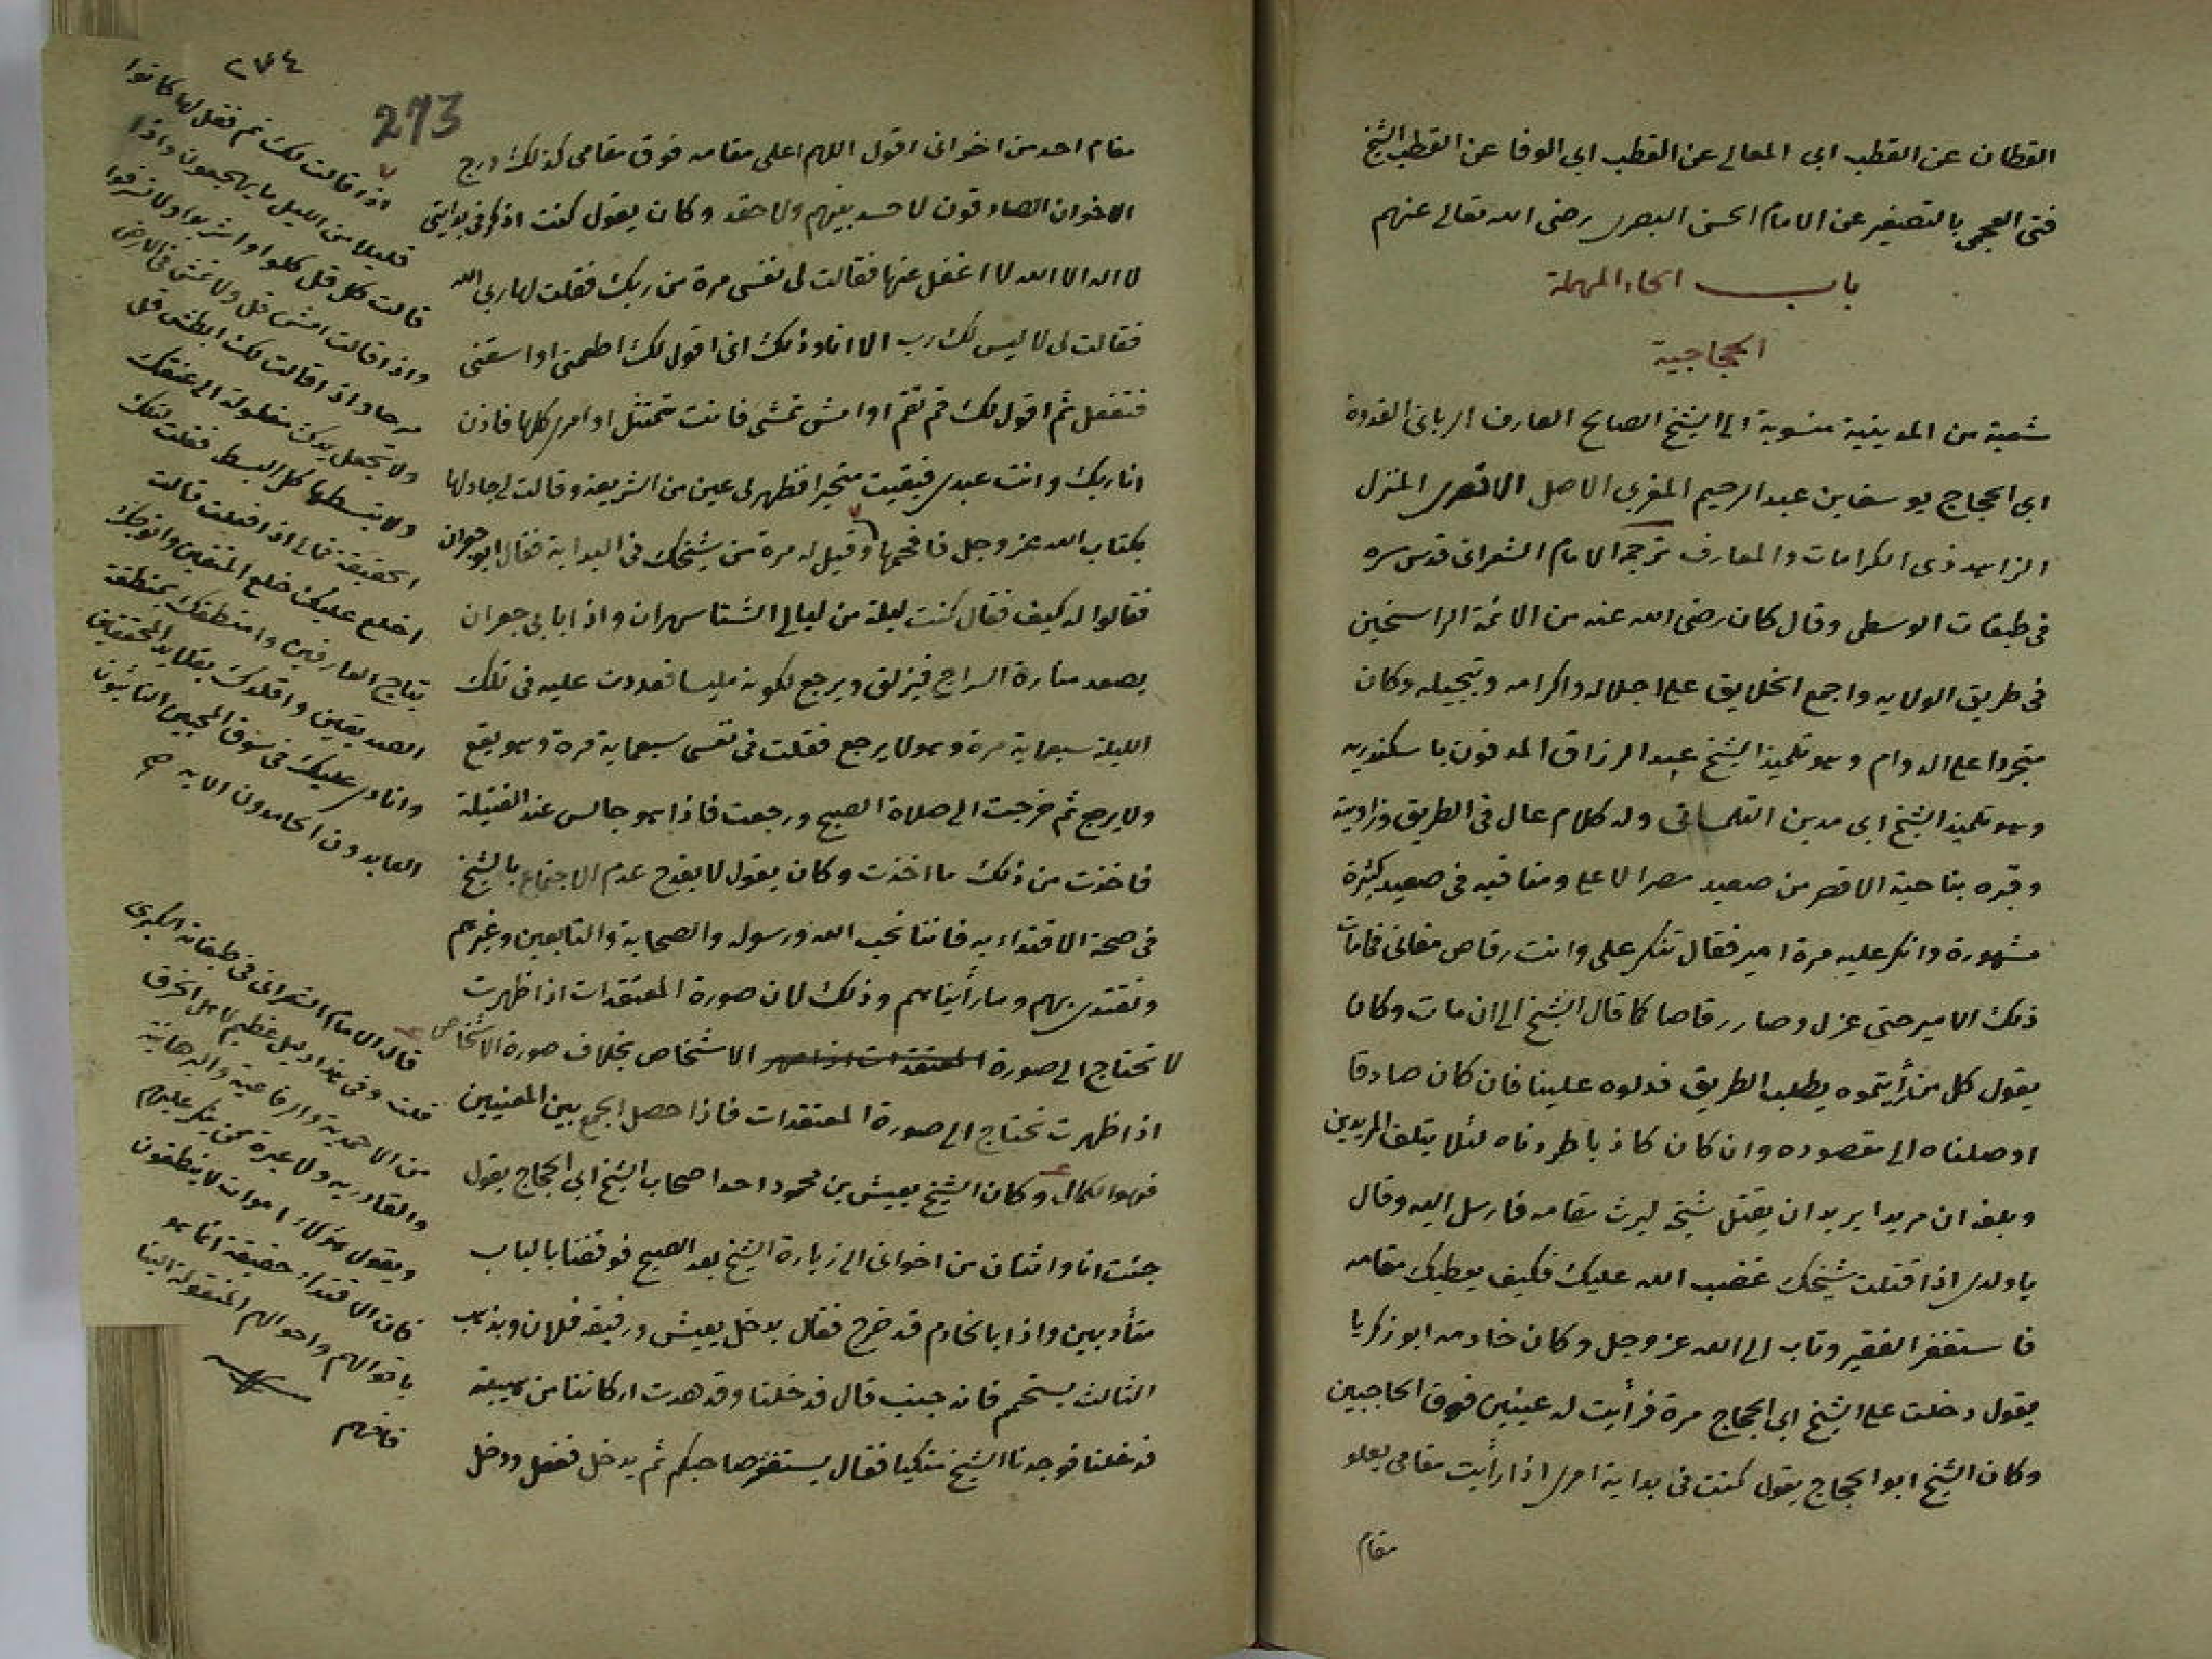 القطان عن القطب ابى المعالى عن القطب ابى الوفا عن القطب الشيخ
فتى العجمى بالتصغير عن الامام الحسن البصرى رضى الله تعالى عنهم
باب الحاء المهملة
الحجاجية
شعبة من المدينية منسوبة الى الشيخ الصالح العارف الربانى القدوة
ابى الحجاج يوسف بن عبد الرحيم المغربى الاصل الاقصرى المنزل
الزاهد ذى الكرامات والمعارف ترجمه الامام الشعرانى قدس سره
فى طبقات الوسطى وقال كان رضى الله عنه من الائمة الراسخين
فى طريق الولايه واجمع الخلايق على اجلاله واكرامه وتبجيله وكان
متجردا على الدوام وهو تلميذ الشيخ عبد الرزاق المدفون باسكندريه
وهو تلميذ الشيخ ابى مدين التلمسانى وله كلام عال فى الطريق وزاويته
وقبره بناحية الاقصر من صعيد مصر الاعلى ومناقبه فى صعيد كثيرة
مشهورة وانكر عليه مرة امير فقال تنكر على وانت رقاص مغانى فامات
ذلك الامير حتى عزل وصار رقاصا كما قال الشيخ الى ان مات وكان
يقول كل من رأيتموه يطلب الطريق فدلوه علينا فان كان صادقا
اوصلناه الى مقصوده وان كان كاذبا طردناه لئلا يتلف المريدين
وبلغه ان مريدا يريد ان يقتل شيخه ليرث مقامه فارسل اليه وقال
ياولدى اذا قتلت شيخك غضب الله عليك فكيف يعطيك مقامه
فاستغفر الفقير وتاب الى الله عز وجل وكان خادمه ابو زكريا
يقول دخلت على الشيخ ابى الحجاج مرة فرأيت له عينين فوق الحاجبين
وكان الشيخ ابو الحجاج يقول كنت فى بداية امرى اذا رأيت مقامى يعلو
مقام
٢٧٤
273
مقام احد من اخوانى اقول اللهم اعلى مقامه فوق مقامى كذلك درج
الاخوان الصادقون لا حسد بينهم ولا حقد وكان يقول كنت اذكر فى بدايتى
لا اله الا الله لا اغفل عنها فقالت لى نفسى مرة من ربك فقلت لها ربى الله
فقالت لى لا ليس لك رب الا انا وذلك انى اقول لك اطعمنى او اسقنى
فتفعل ثم اقول لك قم تقم او امش تمشى فانت تمتثل اوامرى كلها فاذن
انا ربك وانت عبدى فبقيت متحيرا فظهر لى عين من الشريعة وقالت لى جادلها
بكتاب الله عز وجل فافحمها وقيل له مرة من شيخك فى البداية فقال ابو جعران
فقالوا له كيف فقال كنت ليلة من ليالى الشتا سهران واذا بابى جعران
يصعد منارة السراج فيزلق ويرجع لكونه مليسا فعددت عليه فى تلك
الليلة سبعماية مرة وهو لا يرجع فقلت فى نفسى سبعماية مرة وهو يقع
ولا يرجع ثم خرجت الى صلاة الصبح ورجعت فاذا هو جالس عند الفتيلة
فاخذت من ذلك ما اخذت وكان يقول لا يقدح عدم الاجتماع بالشيخ
فى صحة الاقتداء به فاننا نحب الله ورسوله والصحابة والتابعين وغيرهم
ونقتدى بهم وما رأيناهم وذلك لان صورة المعتقدات اذا ظهرت
لا تحتاج الى صورة المعتقدات اذا ظهر الاشخاص بخلاف صورة الاشخاص
اذا ظهرت تحتاج الى صورة المعتقدات فاذا حصل الجمع بين المعنيين
فهو الكمال وكان الشيخ يعيش بن محمود احد اصحاب الشيخ ابى الحجاج يقول
جئت انا واثنان من اخوانى الى زيارة الشيخ بعد الصبح فوقفنا بالباب
متأدبين واذا بالخادم قد خرج فقال يدخل يعيش ورفيقه فلان ويذهب
الثالث يستحم فانه جنب قال فدخلنا وقد هدت اركاننا من هيبته
فدخلنا فوجدنا الشيخ متكيا فقال يستغفر صاحبكم ثم يدخل ففعل ودخل
اذا قالت لك نم فقل لها كانوا
قليلا من الليل ما يهجعون واذا
قالت كل قل كلوا واشربوا ولا تسرفوا
واذا قالت امش قل ولا تمش فى الارض
مرحا واذا قالت لك ابطش قل
ولا تجعل يدك مغلولة الى عنقك
ولا تبسطها كل البسط فقلت لتلك
الحقيقة فمالى اذا فعلت قالت
اخلع عليك خلع المتقين واتوجك
بتاج العارفين وامنطقك بمنطقة
الصديقين واقلدك بقلايد المحققين
وانادى عليك فى سوق المحبين التائبون
العابدون الحامدون الايه صح
قال الامام الشعرانى فى طبقاته الكبرى
قلت وفى هذا دليل عظيم لاهل الخرق
من الاحمدية والرفاعية والبرهانية
والقادريه ولا عبرة بمن ينكر عليهم
ويقول هؤلاء اموات لا ينطقون
فان الاقتداء حقيقة انما هو
باقوالهم واحوالهم المنقولة الينا
فافهم